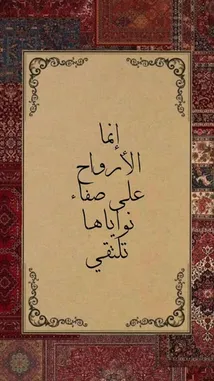 إنما
الأرواح
على صفاء
نواياها
تلتقي